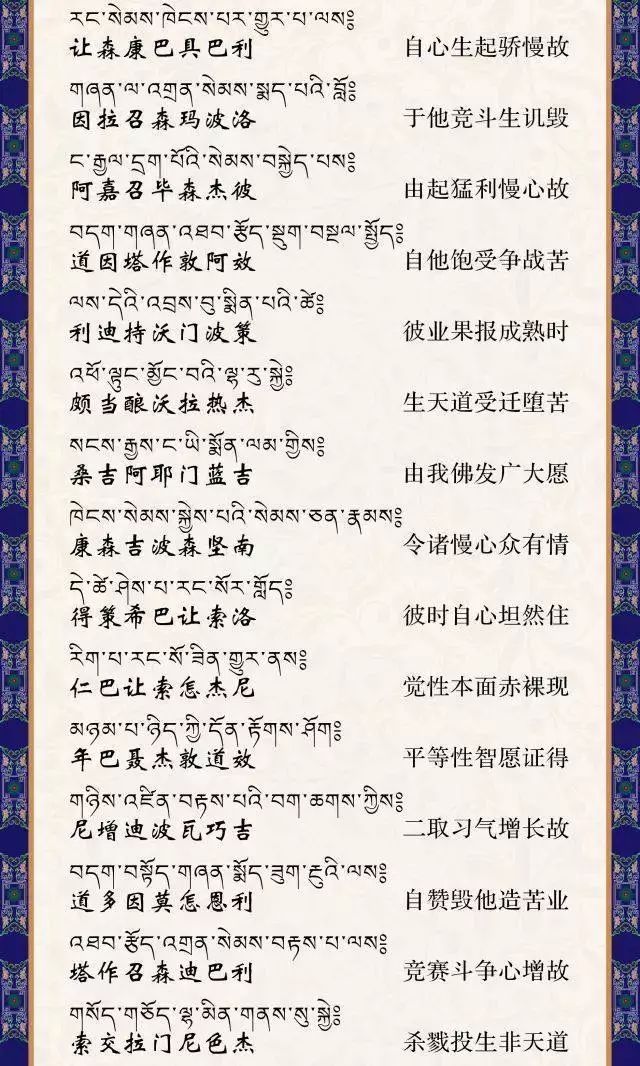 རང་སེམས་ཁེངས་པར་གྱུར་པ་ལས༔
让森康巴具巴利 自心生起骄慢故
གཞན་ལ་འགྲན་སེམས་སྨད་པའི་བློ༔
因拉召森玛波洛 于他竞斗生讥毁
ང་རྒྱལ་དྲག་པོའི་སེམས་བསྐྱེད་པས༔
阿嘉召毕森杰彼 由起猛利慢心故
བདག་གཞན་འཐབ་རྩོད་སྡུག་བསྔལ་སྤྱོད༔
道因塔作敦阿效 自他饱受争战苦
ལས་དེའི་འབྲས་བུ་སྨིན་པའི་ཚེ༔
利迪持沃门波策 彼业果报成熟时
འཕོ་ལྟུང་མྱོང་བའི་ལྷ་རུ་སྐྱེ༔
颇当酿沃拉热杰 生天道受迁堕苦
སངས་རྒྱས་ང་ཡི་སྨོན་ལམ་གྱིས༔
桑吉阿耶门蓝吉 由我佛发广大愿
ཁེངས་སེམས་སྐྱེས་པའི་སེམས་ཅན་རྣམས༔
康森吉波森坚南 令诸慢心众有情
དེ་ཚེ་ཤེས་པ་རང་སོར་གློད༔
得策希巴让索洛 彼时自心坦然住
རིག་པ་རང་སོ་ཟིན་གྱུར་ནས༔
仁巴让索怎杰尼 觉性本面赤裸现
མཉམ་པ་ཉིད་ཀྱི་དོན་རྟོགས་ཤོག༔
年巴聂杰敦道效 平等性智愿证得
གཉིས་འཛིན་བརྟས་པའི་བག་ཆགས་ཀྱིས༔
尼增迪波瓦巧吉 二取习气增长故
བདག་བསྟོད་གཞན་སྨོད་ཟུག་རྔུའི་ལས༔
道多因莫怎恩利 自赞毁他造苦业
འཐབ་རྩོད་འགྲན་སེམས་བརྟས་པ་ལས༔
塔作召森迪巴利 竞赛斗争心增故
གསོད་གཅོད་ལྷ་མིན་གནས་སུ་སྐྱེ༔
索交拉门尼色杰 杀戮投生非天道